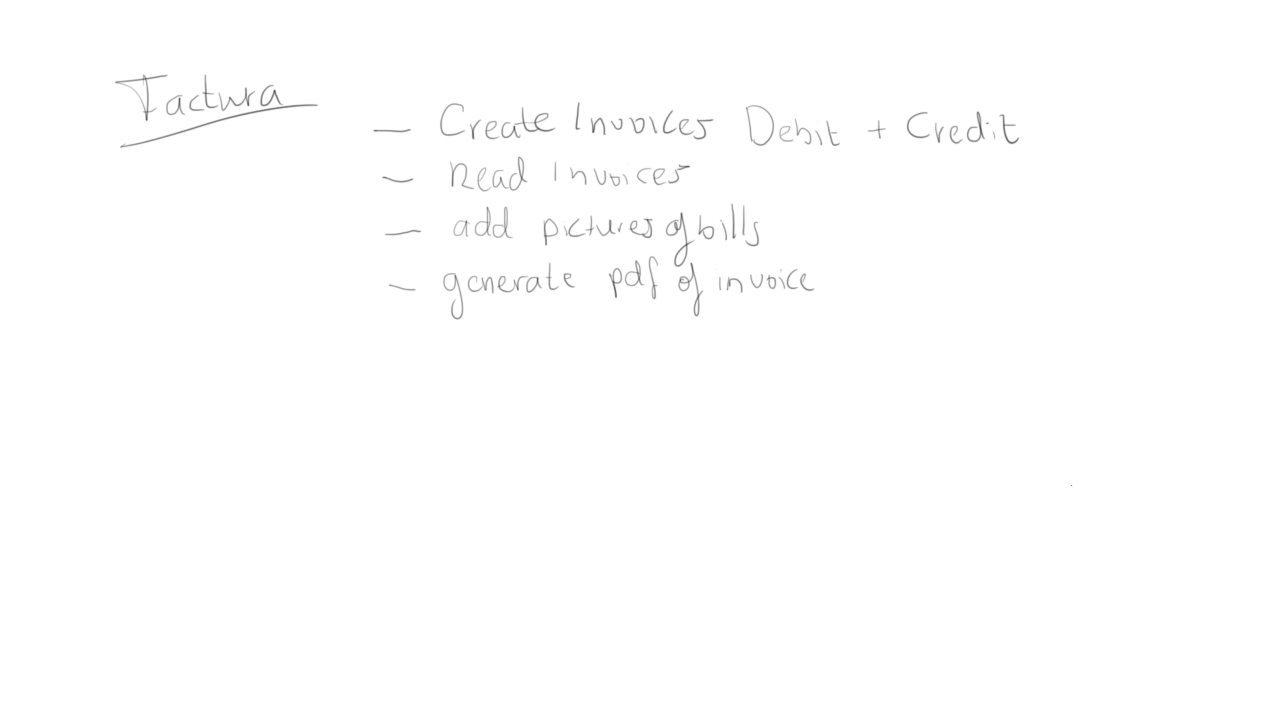 Factura
— Create Invoices Debit + Credit
— Read Invoices
— add pictures of bills
— generate pdf of invoice